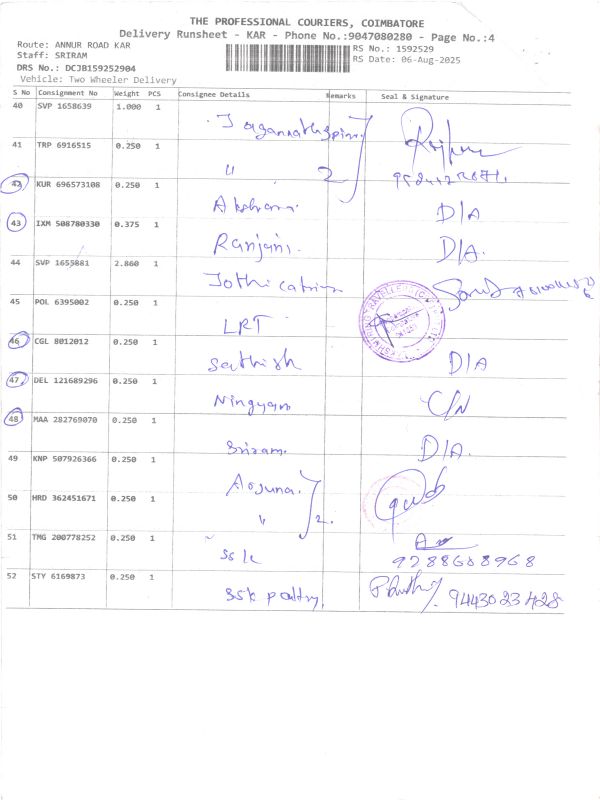 THE PROFESSIONAL COURIERS, COIMBATORE
Delivery Runsheet - KAR - Phone No.:9047080280 - Page No.:4
Route: ANNUR ROAD KAR
RS No.: 1592529
Staff: SRIRAM
RS Date: 06-Aug-2025
DRS No.: DCJB159252904
Vehicle: Two Wheeler Delivery
S No Consignment No Weight PCS Consignee Details Remarks Seal & Signature
40 SVP 1658639 1.000 1
41 TRP 6916515 0.250 1 " 2
42 KUR 696573108 0.250 1 D/A
43 IXM 508780330 0.375 1 Ranjani. D/A.
44 SVP 1655881 2.860 1
45 POL 6395002 0.250 1 LRT
46 CGL 8012012 0.250 1 Sathish D/A
47 DEL 121689296 0.250 1 C/N
48 MAA 282769070 0.250 1 Sriram. D/A.
49 KNP 507926366 0.250 1
50 HRD 362451671 0.250 1 " 2.
51 TMG 200778252 0.250 1 9288608968
52 STY 6169873 0.250 1 9443023428